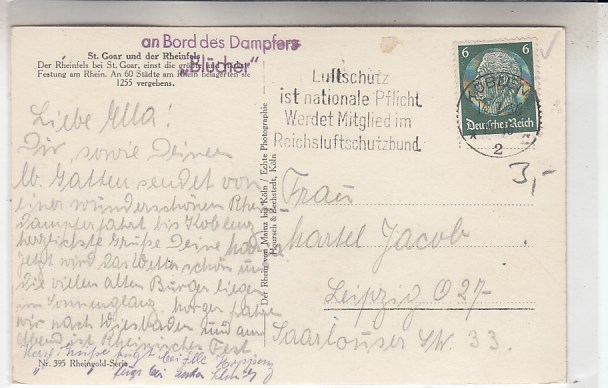 an Bord des Dampfers
"Blücher"
St. Goar und der Rheinfels
Der Rheinfels bei St. Goar, einst die größte
Festung am Rhein. An 60 Städte am Rhein belagerten sie
1255 vergebens.
Luftschutz
ist nationale Pflicht
Werdet Mitglied im
Reichsluftschutzbund.
6 6
Deutsches Reich
2
3,-
Liebe Ella!
Dir, sowie Deinem
lb. Gatten sendet von
einer wunderschönen Rhein
dampferfahrt bis Koblenz
herzlichste Grüße Deine
Jetzt wird das Wetter schön und
die vielen alten Burgen liegen
im Sonnenglanz. Morgen fahren
wir nach Wiesbaden und am
Abend ist Rheinisches Fest
Der Rhein von Mainz bis Köln / Echte Photographie
Hoursch & Bechstedt, Köln
Frau
Martel Jacob
Leipzig O 27
Saarlouiser Str. 33.
Nr. 395 Rheingold-Serie